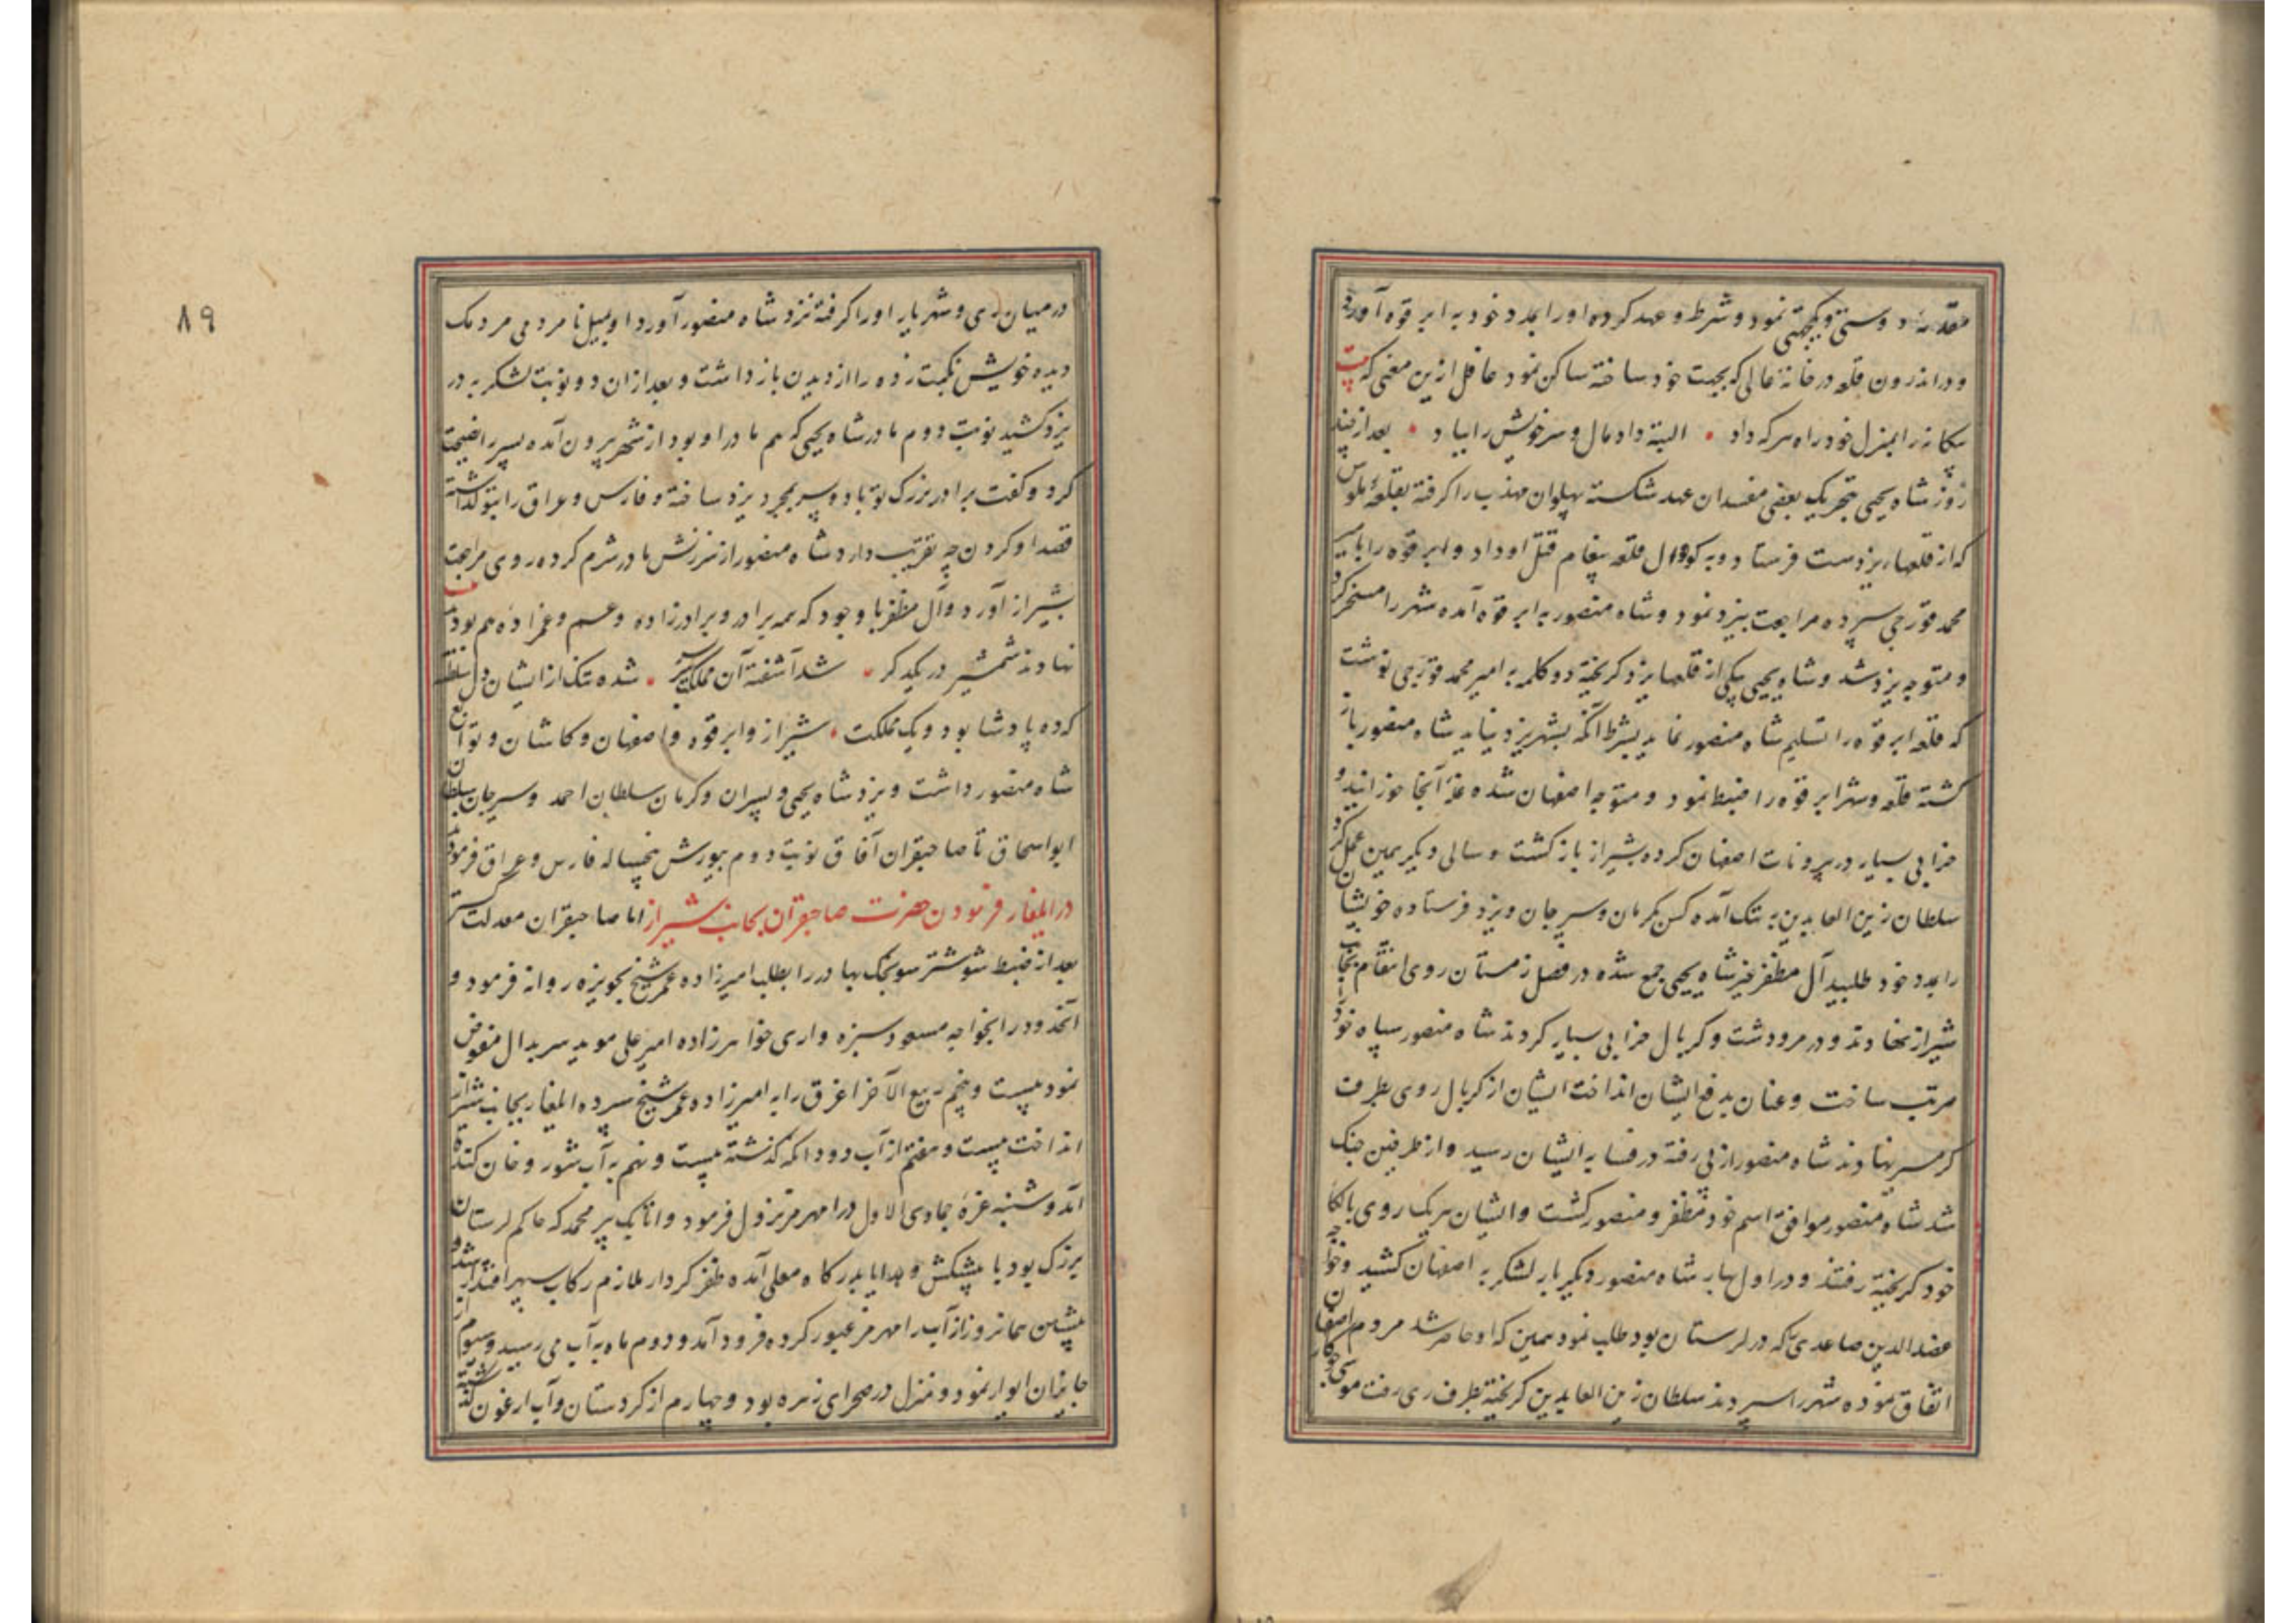 مقدمهٔ دوستی و یکجهتی نمود و شرط و عهد کرده او را بمدد خود به ابرقوه آورد
و در اندرون قلعه در خانهٔ عالی که بجهت خود ساخته ساکن نمود غافل ازین معنی که بیت
بیکانه را بمنزل خود راه هر که داد • البته داد مال و سر خویش را بباد • بعد از چند
روز شاه یحیی بتحریک بعضی مفسدان عهد شکسته پهلوان مهذب را گرفته بقلعهٔ ملوس
که از قلعهاء یزدست فرستاد و به کوتوال قلعه پیغام قتل او داد و ابرقوه را بامیر
محمد قورجی سپرده مراجعت بیزد نمود و شاه منصور به ابرقوه آمده شهر را مسخر کرد
و متوجه یزد شد و شاه یحیی بیکی از قلعهاء یزد کریخته دو کلمه به امیر محمد قورچی نوشت
که قلعه ابرقوه را تسلیم شاه منصور نماید بشرط آنکه بشهر یزد نیاید شاه منصور باز
کشته قلعه و شهر ابرقوه را ضبط نمود و متوجه اصفهان شده غله آنجا خورانید و
خرابی بسیار در بیرونات اصفهان کرده بشیراز باز کشت و سالی دیکر همین عمل کرد
سلطان زین العابدین به تنک آمده کس بکرمان و سیرجان و یزد فرستاده خویشان
را بمدد خود طلبید آل مظفر غیر شاه یحیی جمع شده در فصل زمستان روی انتقام بجانب
شیراز نهادند و در مرودشت و کربال خرابی بسیار کردند شاه منصور سپاه خود
مرتب ساخت و عنان بدفع ایشان انداخت ایشان از کربال روی بطرف
کرمسیر نهادند شاه منصور از پی رفته در فسا به ایشان رسید و از طرفین جنک
شد شاه منصور موافق اسم خود مظفر و منصور کشت و ایشان هریک روی با لکا
خود کریخته رفتند و در اول بهار شاه منصور دیکر بار لشکر به اصفهان کشید و خواجه
عضد الدین صاعدی که در لرستان بود طلب نمود همین که او حاضر شد مردم اصفهان
اتفاق نموده شهر را سپردند سلطان زین العابدین کریخته بطرف ری رفت موسی جوکار
۸۹
در میان ری و شهریار او را کرفته نزد شاه منصور آورد او بمیل نامردمی مردمک
دیده خویش نکبت زده را از دیدن باز داشت و بعد از ان دو نوبت لشکر به در
یزد کشید نوبت دوم مادر شاه یحیی که هم مادر او بود از شهر بیرون آمده پسر را نصیحت
کرد و کفت برادر بزرک تو با دو پسر بمجرد یزد ساخته و فارس و عراق را بتو کذاشته
قصد او کردن چه تقریب دارد شاه منصور از سرزنش مادر شرم کرده روی مراجعت
بشیراز آورد و آل مظفر با وجود که همه برادر و برادرزاده و عم و عمزاده هم بودند بیت
نهادند شمشیر در یکدکر • شد آشفته آن مملکت سر بسر • شده تنک از ایشان دل سلطنت
کرده پادشا بود و یک مملکت • شیراز و ابرقوه و اصفهان و کاشان و توابع
شاه منصور داشت و یزد شاه یحیی و پسران و کرمان سلطان احمد و سیرجان سلطان
ابو اسحاق تا صاحبقران آفاق نوبت دوم بیورش پنجساله فارس و عراق فرمودند
در ایلغار فرمودن حضرت صاحبقران بجانب شیراز اما صاحبقران معدلت کستر
بعد از ضبط شوشتر سونجک بهادر را بطلب امیرزاده عمر شیخ بحویزه روانه فرمود و
آنحدود را بخواجه مسعود سبزه واری خواهرزاده امیر علی موید سربدال مفوض
نمود بیست و پنجم ربیع الآخر اغرق را به امیرزاده عمر شیخ سپرده ایلغار بجانب شیراز
انداخت بیست و هفتم از آب دودانکه کذشته بیست و نهم به آب شور و خان کنده
آمد و شنبه غره جمادی الاول در رامهرمز نزول فرمود و اتابک پیر محمد که حاکم لرستان
بزرک بود با پیشکش و هدایا بدرکاه معلی آمده ظفر کردار ملازم رکاب سپهر اقتدار شد و
پیشین همانروز از آب رامهرمز عبور کرده فرود آمد و دوم ماه به آب می رسید و سیوم از
جایزان ایوار نمود و منزل در صحرای زهره بود و چهارم از کردستان و آب ارغون کذشته